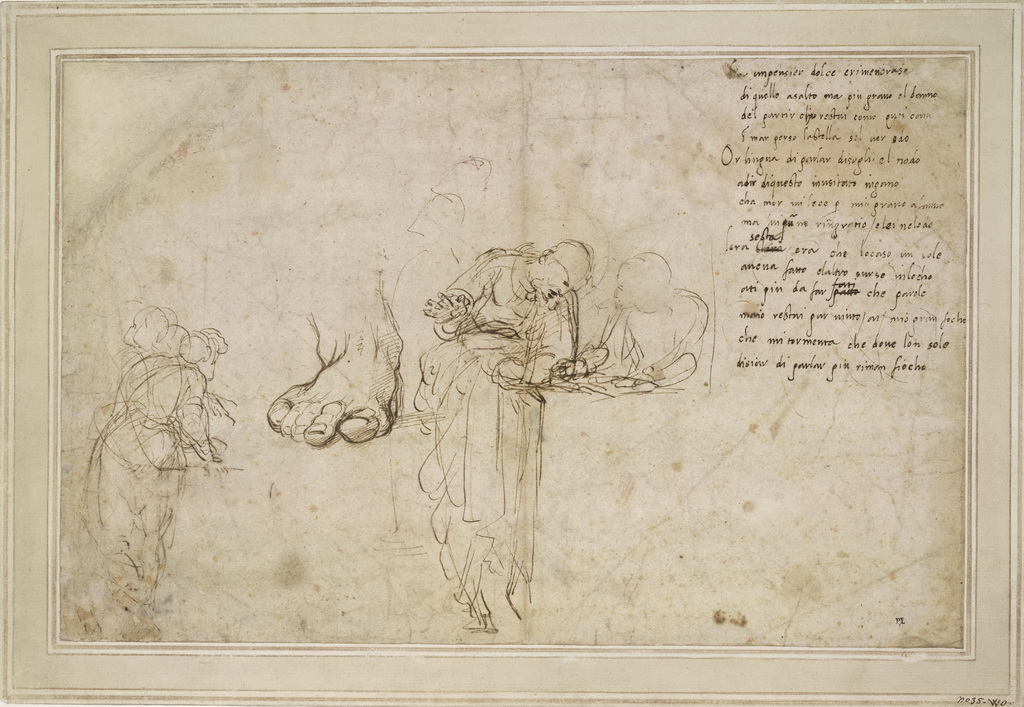 un pensier dolce e rimenbrase
di quello asalto ma piu gravo el danno
del partir chio restai como quei cano
i mar perso la stella sol ver
Or lingua di parlar disogli el nodo
a dir di questo inusitato ingano
cha mor mi fece p mio gravo afanno
ma lui ringratio / e lei ne lodo
sesta
lora era che locaso un sole
aveva fatto e laltro surse
ati piu da far fati che parole
ma io restai pur vinto / al mio gran focho
che mi tormenta che dove lon sole
disiar di parlar piu riman fiocho
PL